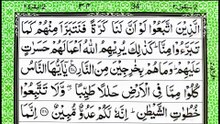 الَّذِيْنَ اتَّبَعُوْا لَوْ اَنَّ لَنَا كَرَّةً فَنَتَبَرَّاَ مِنْهُمْ كَمَا
تَبَرَّءُوْا مِنَّا ؕ كَذٰلِكَ يُرِيْهِمُ اللّٰهُ اَعْمَالَهُمْ حَسَرٰتٍ
عَلَيْهِمْ ؕ وَمَا هُمْ بِخٰرِجِيْنَ مِنَ النَّارِ يٰۤاَيُّهَا النَّاسُ
كُلُوْا مِمَّا فِى الْاَرْضِ حَلٰلًا طَيِّبًا ۖ وَّلَا تَتَّبِعُوْا
خُطُوٰتِ الشَّيْطٰنِ ؕ اِنَّهٗ لَكُمْ عَدُوٌّ مُّبِيْنٌ اِنَّمَا